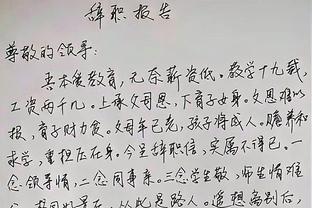 辞职报告
尊敬的领导:
本從教育,无奈薪资低。教学十九载,
工资两千几。上承父母恩,下育子女身。父恩难以
报,育子财力贫。父母年已老,孩子将成人。赡养和
求学,重担压在身。今呈辞职信,实属不得已。一
念领导情,二念同事亲。三念学生敏,师生情难
从此是路人。遥想离别后,